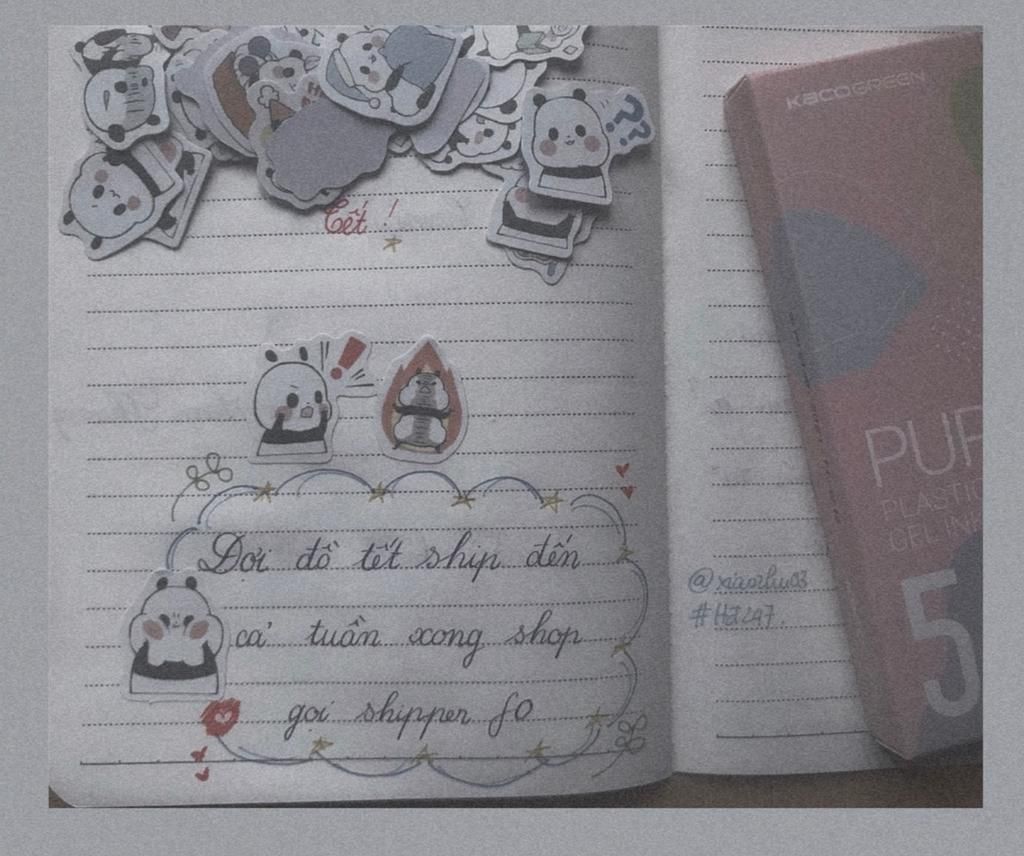 KACOGREEN
??
Tết !
!
PUR
PLASTIC
GEL INK
5
Đợi đồ tết ship đến
cả tuần xong shop
gọi shipper f0